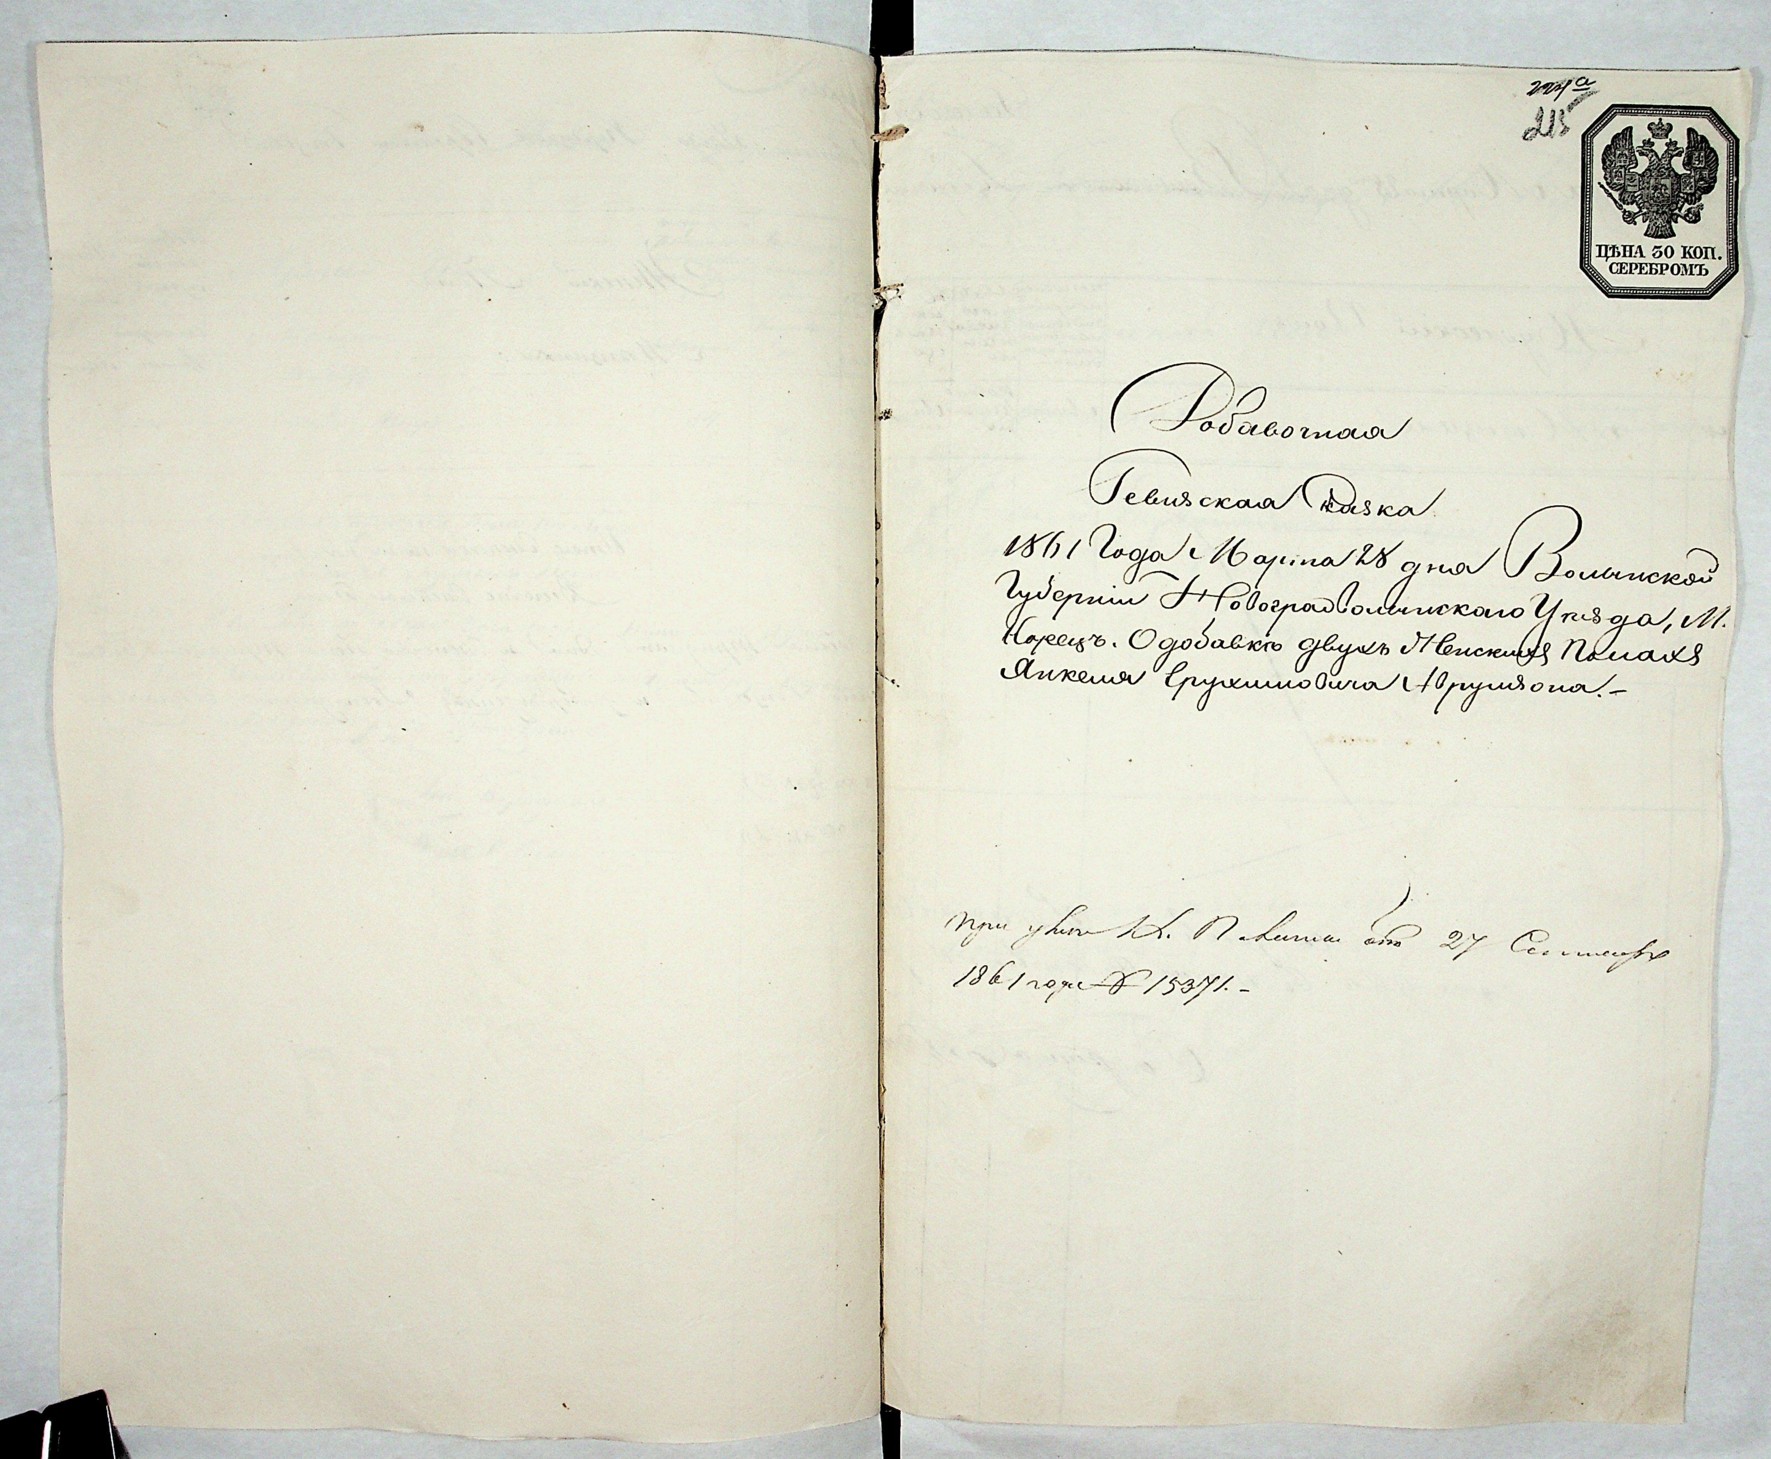 224а
215
ЦѢНА 30 КОП.
СЕРЕБРОМЪ
Добавочная
Ревизская Сказка
1861 Года Марта 28 дня Волынской
Губерніи Новоградволынскаго Уѣзда, М.
Корецъ. О добавкѣ двухъ Женскихъ Полахъ
Янкеля Срухимовича Аврумзона.-
При указѣ К. Палаты отъ 27 Сентября
1861 года № 15371.-